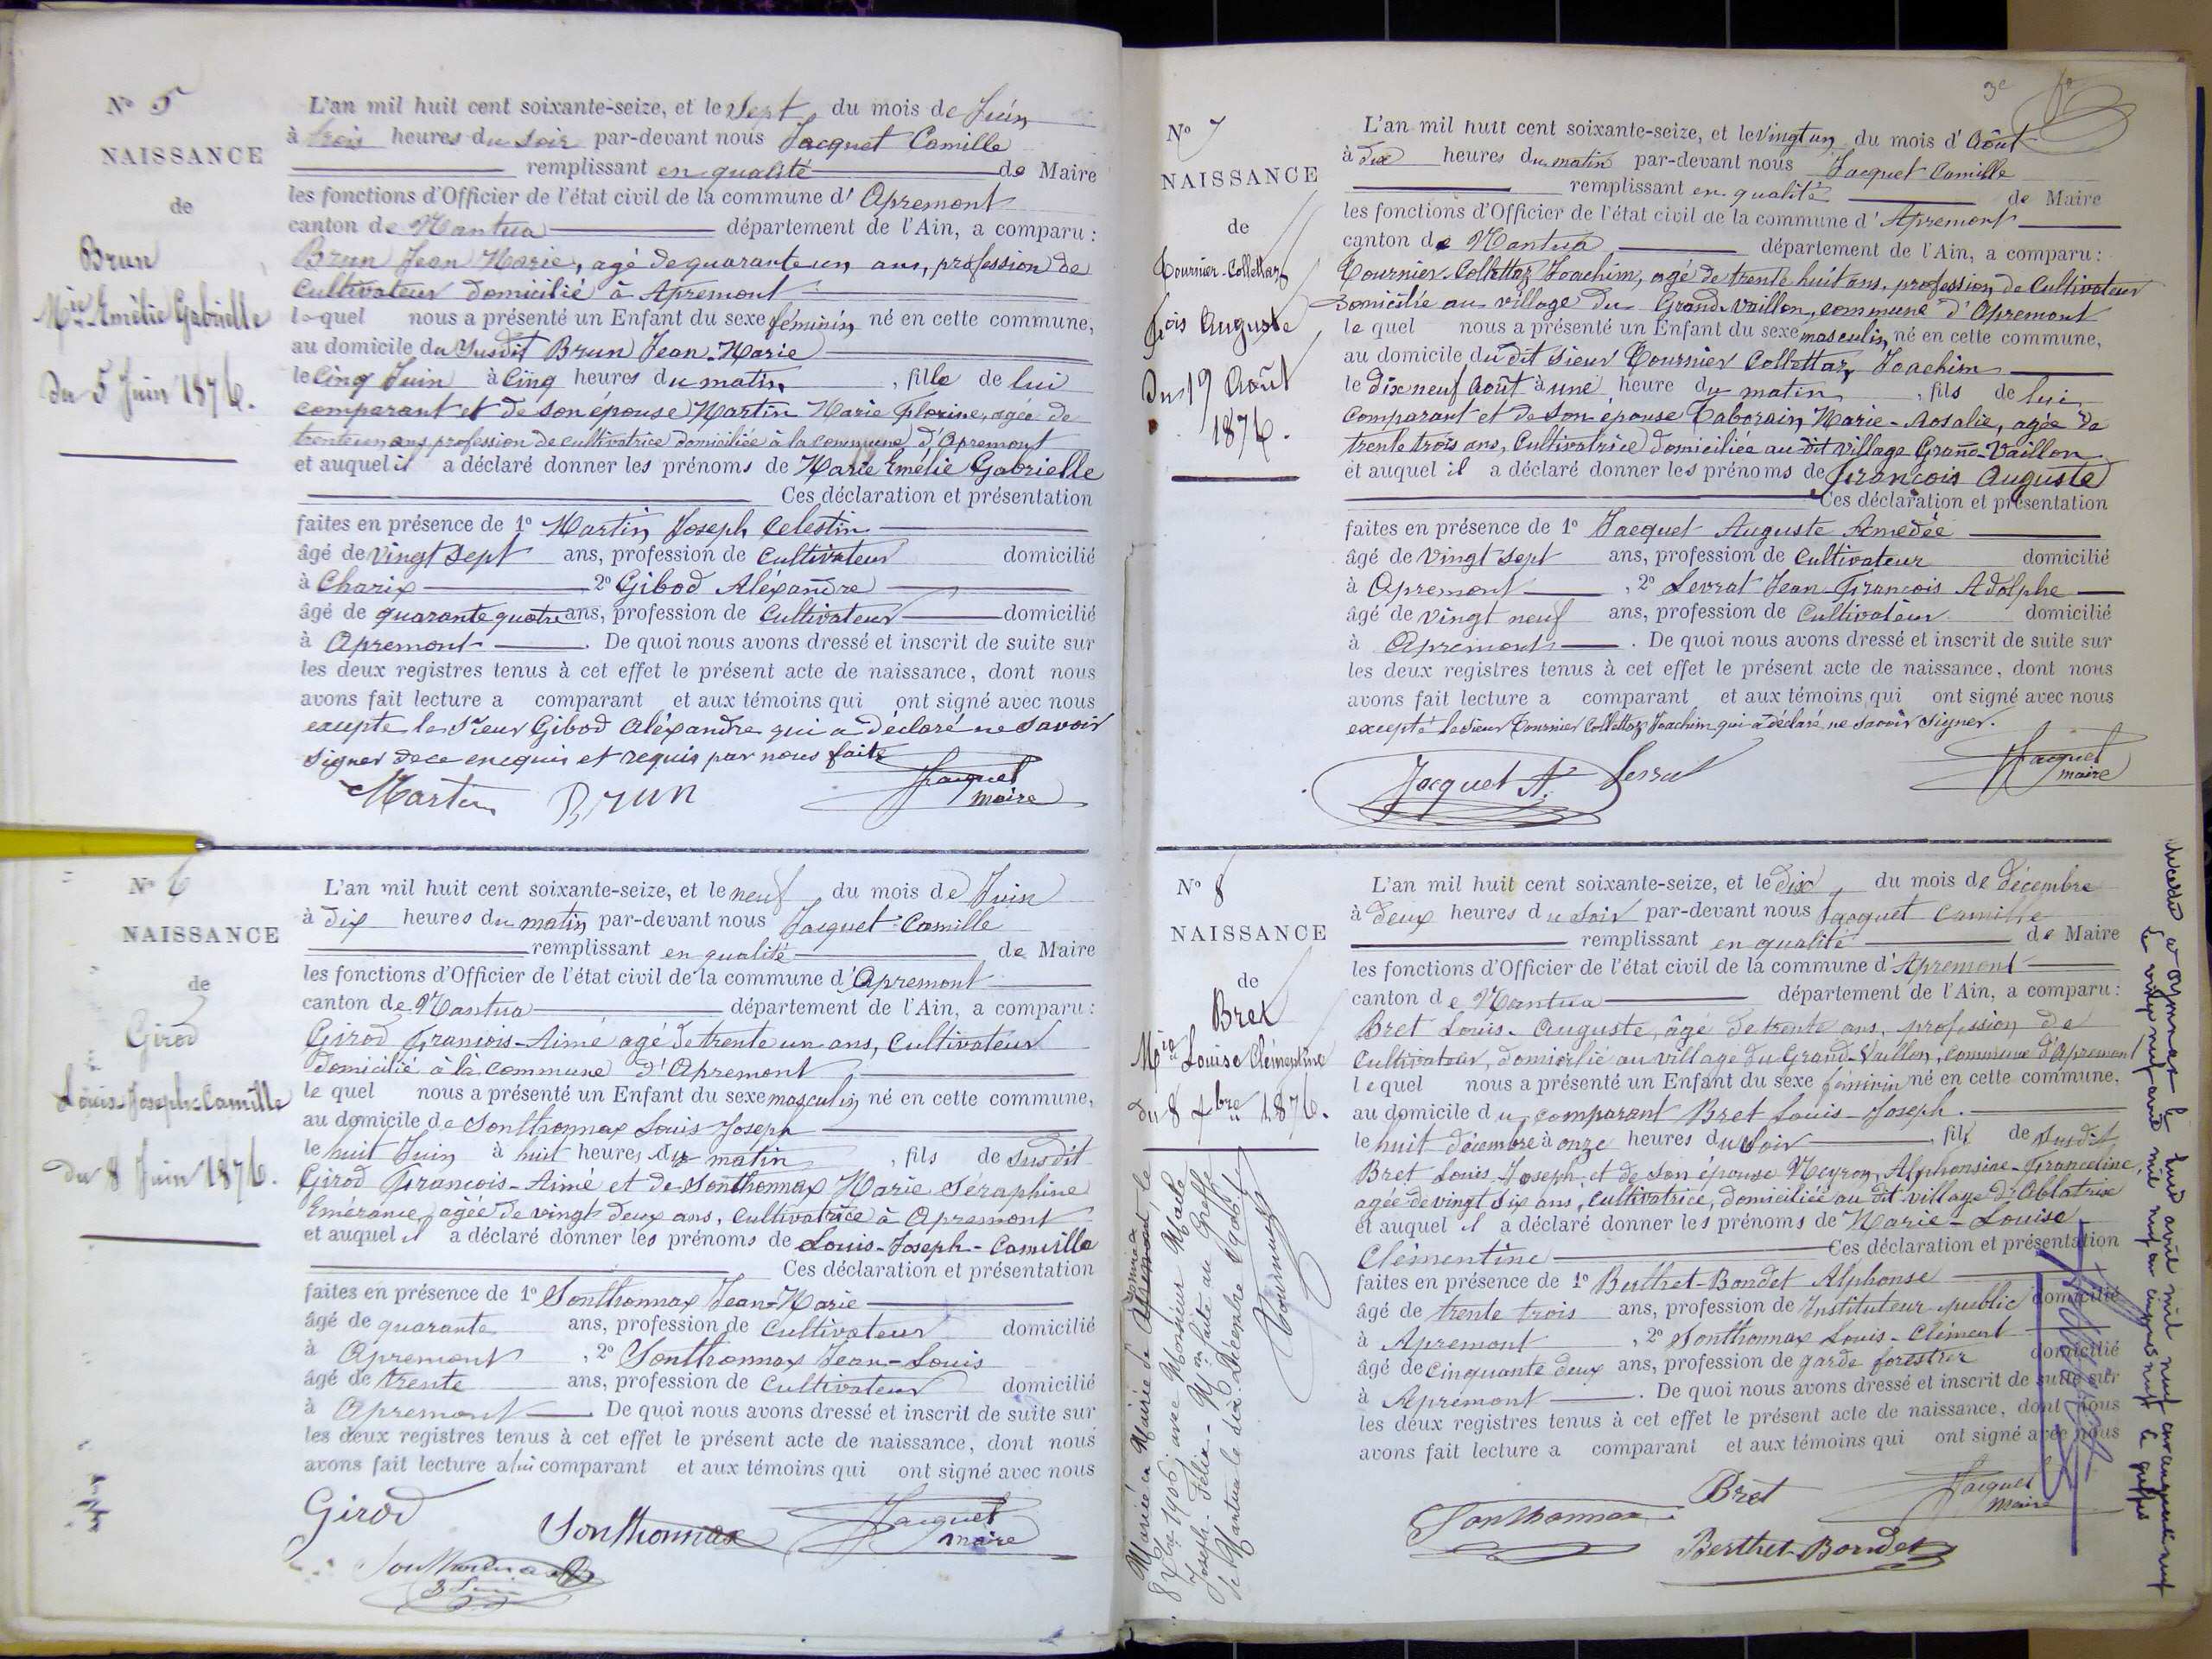 N° 5
NAISSANCE
de
Brun
Mie Emélie Gabrielle
du 5 Juin 1876.
L'an mil huit cent soixante-seize, et le Sept du mois de Juin
à trois heures du soir par-devant nous Jacquet Camille
remplissant en qualité de Maire
les fonctions d'Officier de l'état civil de la commune d'Apremont
canton de Nantua département de l'Ain, a comparu :
Brun Jean Marie, agé de quarante un ans, profession de
Cultivateur domicilié à Apremont
lequel nous a présenté un Enfant du sexe féminin né en cette commune,
au domicile du susdit Brun Jean-Marie
le Cinq Juin à Cinq heures du matin, fille de lui
comparant et de son épouse Martin Marie Florine, agée de
trente un ans profession de cultivatrice domiciliée à la commune d'Apremont
et auquel il a déclaré donner les prénoms de Marie Emélie Gabrielle
Ces déclaration et présentation
faites en présence de 1° Martin Joseph Celestin
âgé de vingt sept ans, profession de Cultivateur domicilié
à Charix 2° Gibod Aléxandre
âgé de quarante quatre ans, profession de Cultivateur domicilié
à Apremont. De quoi nous avons dressé et inscrit de suite sur
les deux registres tenus à cet effet le présent acte de naissance, dont nous
avons fait lecture a comparant et aux témoins qui ont signé avec nous
excepte le sieur Gibod Aléxandre qui a déclaré ne savoir
signer de ce enequis et requis par nous faite
Martin Brun Jacquet
maire
N° 6
NAISSANCE
de
Girod
Louis-Joseph-Camille
du 8 Juin 1876.
L'an mil huit cent soixante-seize, et le neuf du mois de Juin
à dix heures du matin par-devant nous Jacquet Camille
remplissant en qualité de Maire
les fonctions d'Officier de l'état civil de la commune d'Apremont
canton de Nantua département de l'Ain, a comparu :
Girod François-Aimé agé de trente un ans, Cultivateur
domicilié à la commune d'Apremont
le quel nous a présenté un Enfant du sexe masculin né en cette commune,
au domicile de Sonthonnax Louis Joseph
le huit Juin à huit heures du matin, fils de susdit
Girod François-Aimé et de Sonthonnax Marie Séraphine
Emérance, agée de vingt deux ans, Cultivatrice à Apremont
et auquel il a déclaré donner les prénoms de Louis-Joseph-Camille
Ces déclaration et présentation
faites en présence de 1° Sonthonnax Jean-Marie
âgé de quarante ans, profession de Cultivateur domicilié
à Apremont, 2° Sonthonnax Jean-Louis
âgé de trente ans, profession de Cultivateur domicilié
à Apremont. De quoi nous avons dressé et inscrit de suite sur
les deux registres tenus à cet effet le présent acte de naissance, dont nous
avons fait lecture a lui comparant et aux témoins qui ont signé avec nous
Girod Sonthonnax Jacquet
maire
Sonthonnax
3e
N° 7
NAISSANCE
de
Tournier-Collettaz
Fois Auguste
du 19 Août
1876.
L'an mil huit cent soixante-seize, et le vingt un du mois d'Août
à dix heures du matin par-devant nous Jacquet Camille
remplissant en qualité de Maire
les fonctions d'Officier de l'état civil de la commune d'Apremont
canton de Nantua département de l'Ain, a comparu :
Tournier-Collettaz Joachim, agé de trente huit ans, profession de Cultivateur
domicilié au village du Grand-vaillon, commune d'Apremont
le quel nous a présenté un Enfant du sexe masculin né en cette commune,
au domicile du dit sieur Tournier Collettaz, Joachim
le dix neuf Août à une heure du matin, fils de lui
comparant et de son épouse Taborain Marie-Rosalie, agée de
trente trois ans, Cultivatrice domiciliée au dit village Grand-Vaillon
et auquel il a déclaré donner les prénoms de François Auguste
Ces déclaration et présentation
faites en présence de 1° Jacquet Auguste Amedée
âgé de vingt sept ans, profession de Cultivateur domicilié
à Apremont, 2° Levrat Jean-François Adolphe
âgé de vingt neuf ans, profession de Cultivateur domicilié
à Apremont. De quoi nous avons dressé et inscrit de suite sur
les deux registres tenus à cet effet le présent acte de naissance, dont nous
avons fait lecture a comparant et aux témoins qui ont signé avec nous
excepté le sieur Tournier Collettaz Joachim qui a déclaré ne savoir signer.
Jacquet A. Levrat Jacquet
maire
N° 8
NAISSANCE
de
Bret
Mie Louise Clémentine
du 8 Xbre 1876.
Mariée en Mairie de Apremont le
8 1906, avec Monsieur
Joseph-Félix - Mon faite au Greffe
de Nantua le dix Décembre
L'an mil huit cent soixante-seize, et le dix du mois de décembre
à deux heures du soir par-devant nous Jacquet Camille
remplissant en qualité de Maire
les fonctions d'Officier de l'état civil de la commune d'Apremont
canton de Nantua département de l'Ain, a comparu :
Bret Louis-Auguste, âgé de trente ans, profession de
Cultivateur, domicilié au village du Grand-Vaillon, commune d'Apremont
lequel nous a présenté un Enfant du sexe féminin né en cette commune,
au domicile du comparant Bret Louis-Joseph.
le huit décembre à onze heures du soir, fils de susdit
Bret Louis Joseph, et de son épouse Meyron, Alphonsine-Franceline,
agée de vingt six ans, Cultivatrice, domiciliée au dit village d'Ablatrix
et auquel il a déclaré donner les prénoms de Marie-Louise
Clémentine Ces déclaration et présentation
faites en présence de 1° Berthet-Bondet Alphonse
âgé de trente trois ans, profession de Instituteur public domicilié
à Apremont, 2° Sonthonnax Louis-Clément
âgé de cinquante deux ans, profession de garde forestier domicilié
à Apremont. De quoi nous avons dressé et inscrit de suite sur
les deux registres tenus à cet effet le présent acte de naissance, dont nous
avons fait lecture a comparant et aux témoins qui ont signé avec nous
Sonthonnax Bret Jacquet
maire
Berthet-Bondet
décédée à Oyonnax le huit avril mil neuf cent cinquante neuf
le vingt neuf avril mil neuf cent cinquante neuf le greffier